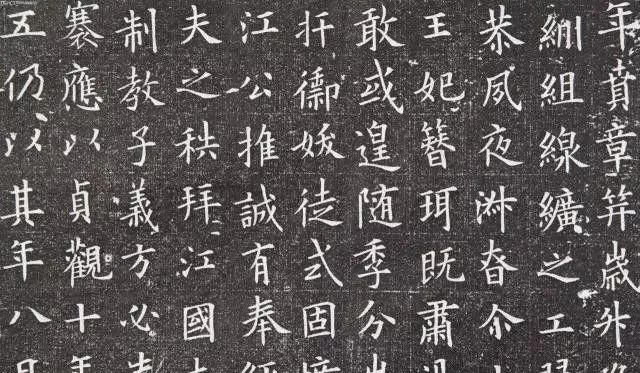 年賁章笄歲升
組線纊之工
恭夙夜
王妃簪珥既肅
敢或遑随季分
扞衞媛徒式固
江公推誠有奉
夫之秩拜江國
制教子義方必
褰應以貞觀十年
五仍以其年八月